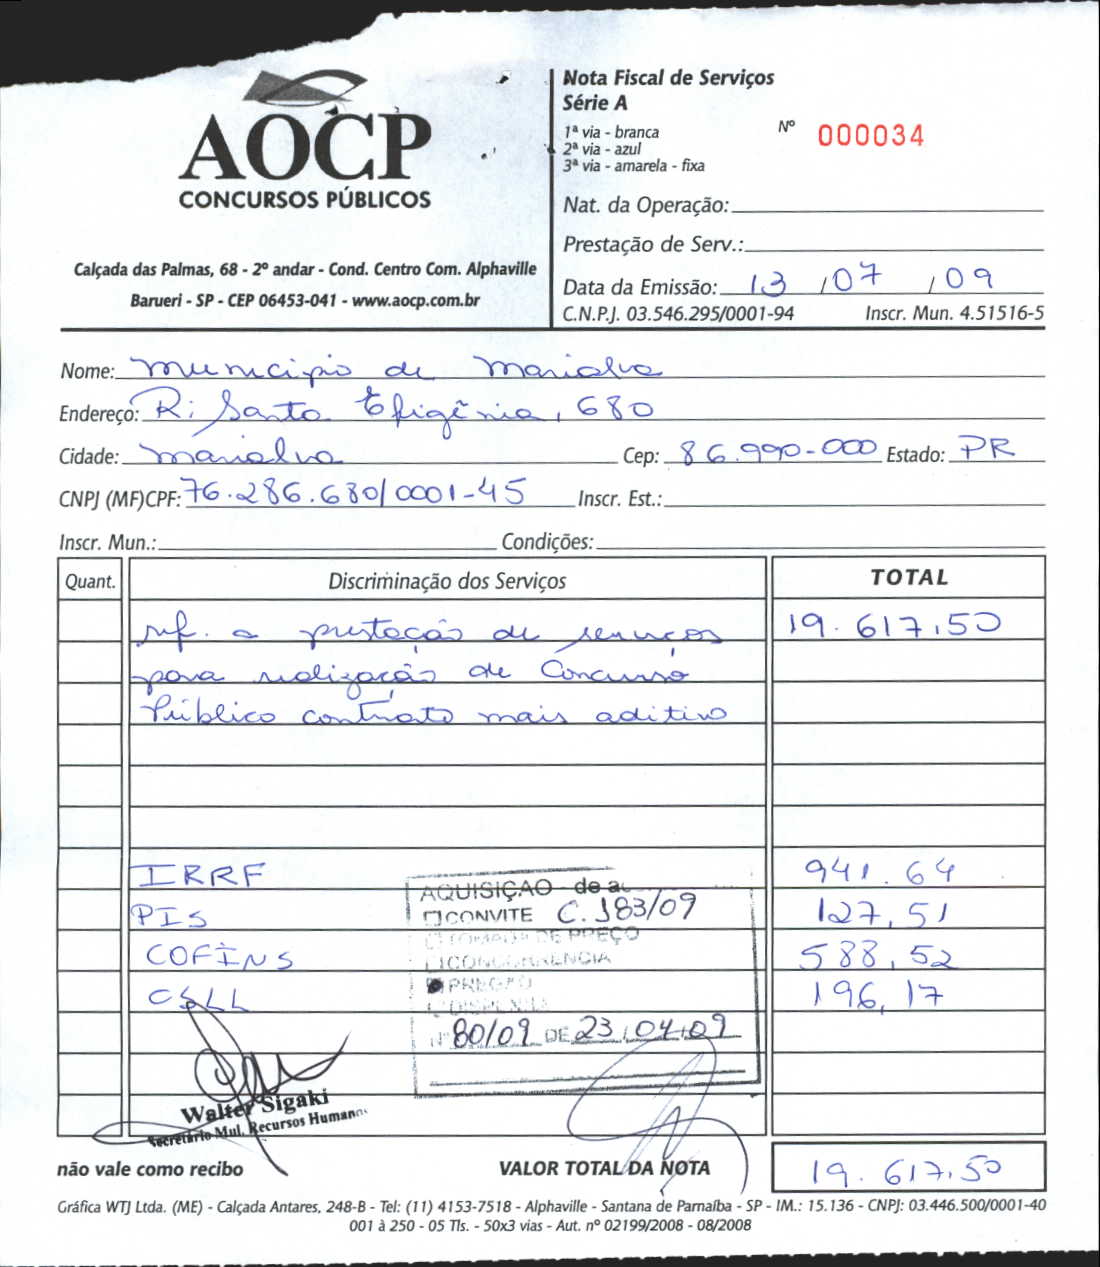 AOCP
CONCURSOS PÚBLICOS
Calçada das Palmas, 68 - 2º andar - Cond. Centro Com. Alphaville
Barueri - SP - CEP 06453-041 - www.aocp.com.br
Nota Fiscal de Serviços
Série A
1ª via - branca
2ª via - azul
3ª via - amarela - fixa
Nº 000034
Nat. da Operação:
Prestação de Serv.:
Data da Emissão: 13 / 07 / 09
C.N.P.J. 03.546.295/0001-94 Inscr. Mun. 4.51516-5
Nome: Município de Marialva
Endereço: R: Santa Efigênia, 680
Cidade: Marialva Cep: 86.990-000 Estado: PR
CNPJ (MF)CPF: 76.286.680/0001-45 Inscr. Est.:
Inscr. Mun.: Condições:
Quant. Discriminação dos Serviços TOTAL
ref. a prestação de serviços 19.617,50
para realização de Concurso
Público contrato mais aditivo
IRRF 941.64
PIS 127,51
COFINS 588,52
CSLL 196,17
AQUISIÇAO - de
CONVITE C. 183/09
TOMADA DE PREÇO
CONCORRENCIA
PREGÃO
DISPENSA
Nº 80/09 DE 23/04/09
Walter Sigaki
Secretário Mul. Recursos Humanos
não vale como recibo VALOR TOTAL DA NOTA 19.617,50
Gráfica WTJ Ltda. (ME) - Calçada Antares, 248-B - Tel: (11) 4153-7518 - Alphaville - Santana de Parnaíba - SP - IM.: 15.136 - CNPJ: 03.446.500/0001-40
001 à 250 - 05 Tls. - 50x3 vias - Aut. nº 02199/2008 - 08/2008